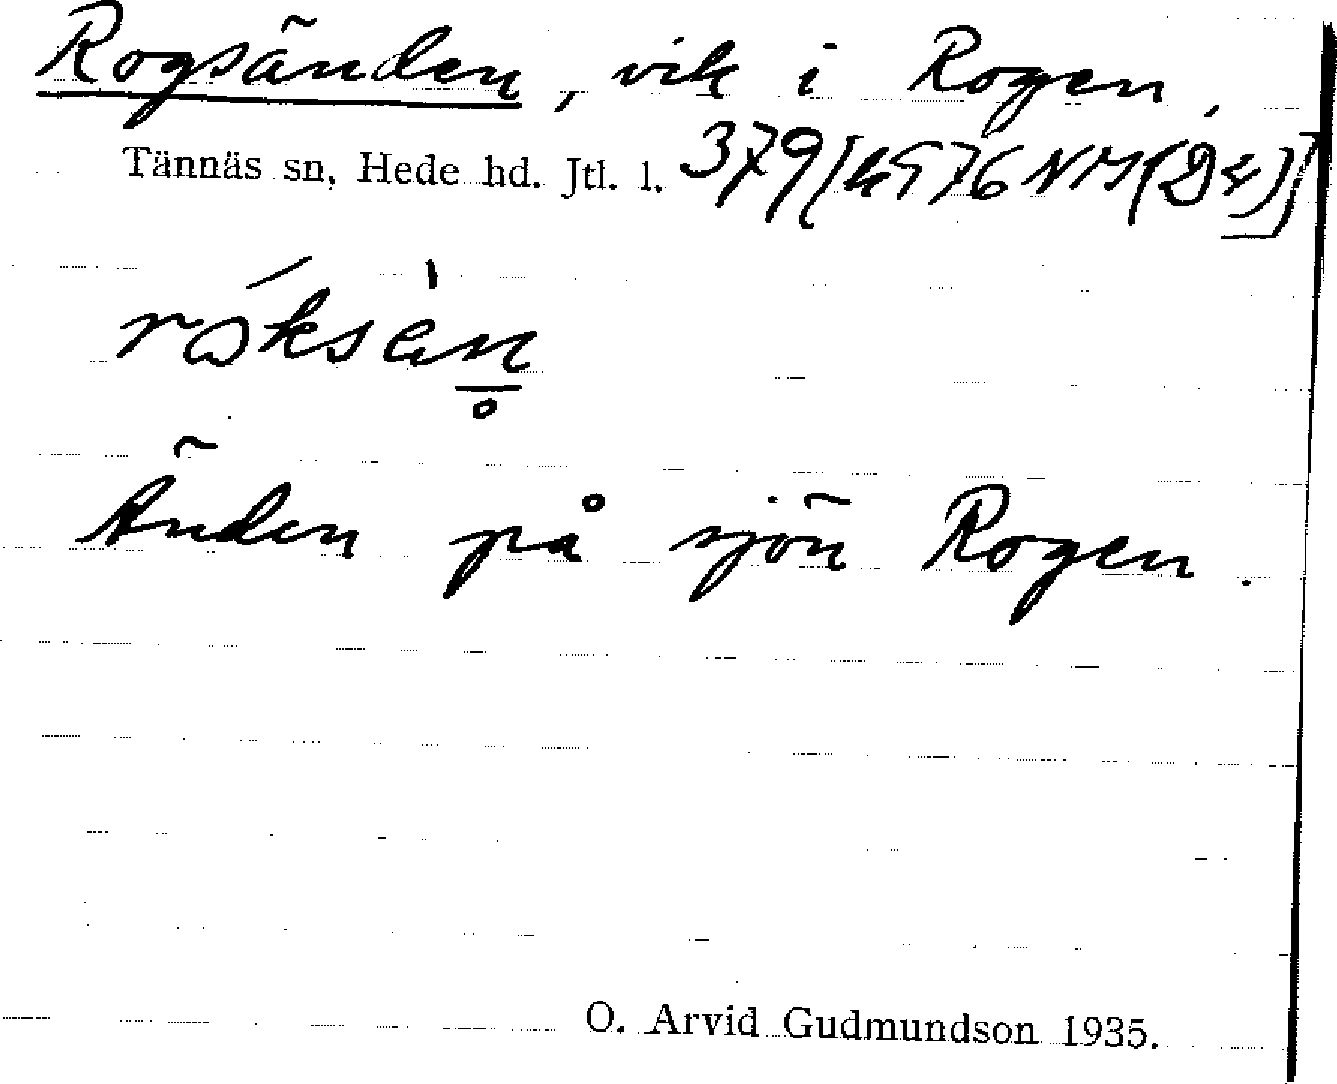 Rogsänden, vik i Rogen,
Tännäs sn, Hede hd. Jtl. l. 379
Änden på sjön Rogen.
O. Arvid Gudmundson 1935.